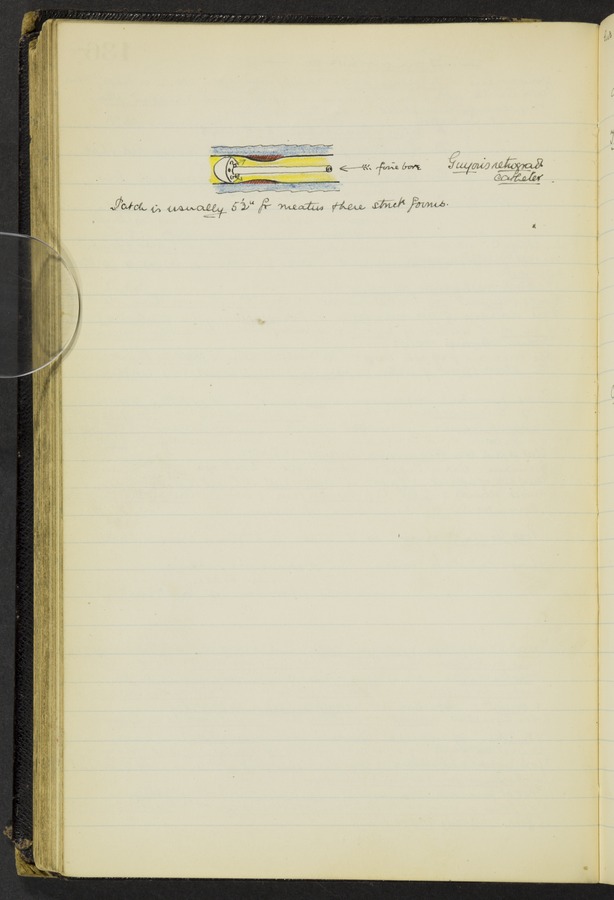 fine bore
Guyon's retrograde
catheter
Patch is usually 5½" fr meatus & here strict forms.